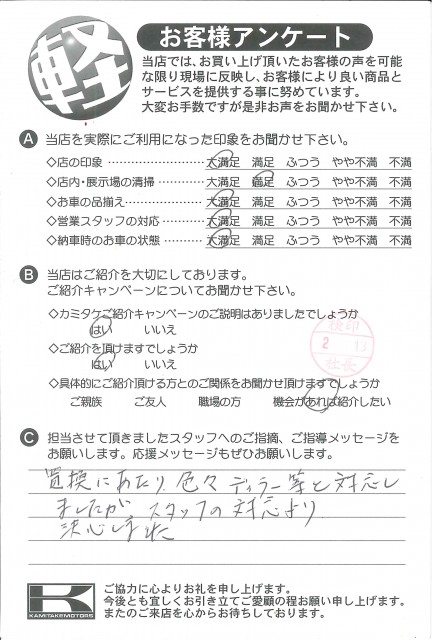 軽
お客様アンケート
当店では、お買い上げ頂いたお客様の声を可能
な限り現場に反映し、お客様により良い商品と
サービスを提供する事に努めています。
大変お手数ですが是非お声をお聞かせ下さい。
A 当店を実際にご利用になった印象をお聞かせ下さい。
◇店の印象 ………………… 大満足 満足 ふつう やや不満 不満
◇店内・展示場の清掃 ………… 大満足 満足 ふつう やや不満 不満
◇お車の品揃え ……………… 大満足 満足 ふつう やや不満 不満
◇営業スタッフの対応 ………… 大満足 満足 ふつう やや不満 不満
◇納車時のお車の状態 ………… 大満足 満足 ふつう やや不満 不満
B 当店はご紹介を大切にしております。
ご紹介キャンペーンについてお聞かせ下さい。
◇カミタケご紹介キャンペーンのご説明はありましたでしょうか
はい いいえ
◇ご紹介を頂けますでしょうか
はい いいえ
◇具体的にご紹介頂ける方とのご関係をお聞かせ頂けますでしょうか
ご親族 ご友人 職場の方 機会があれば紹介したい
検印
社長
C 担当させて頂きましたスタッフへのご指摘、ご指導メッセージを
お願いします。応援メッセージもぜひお願いします。
置換にあたり 色々 ディラー等と対応し
ましたが スタッフの対応より
決心しました
KAMITAKEMOTORS
ご協力に心よりお礼を申し上げます。
今後とも宜しくお引き立てご愛顧の程お願い申し上げます。
またのご来店を心からお待ちしております。